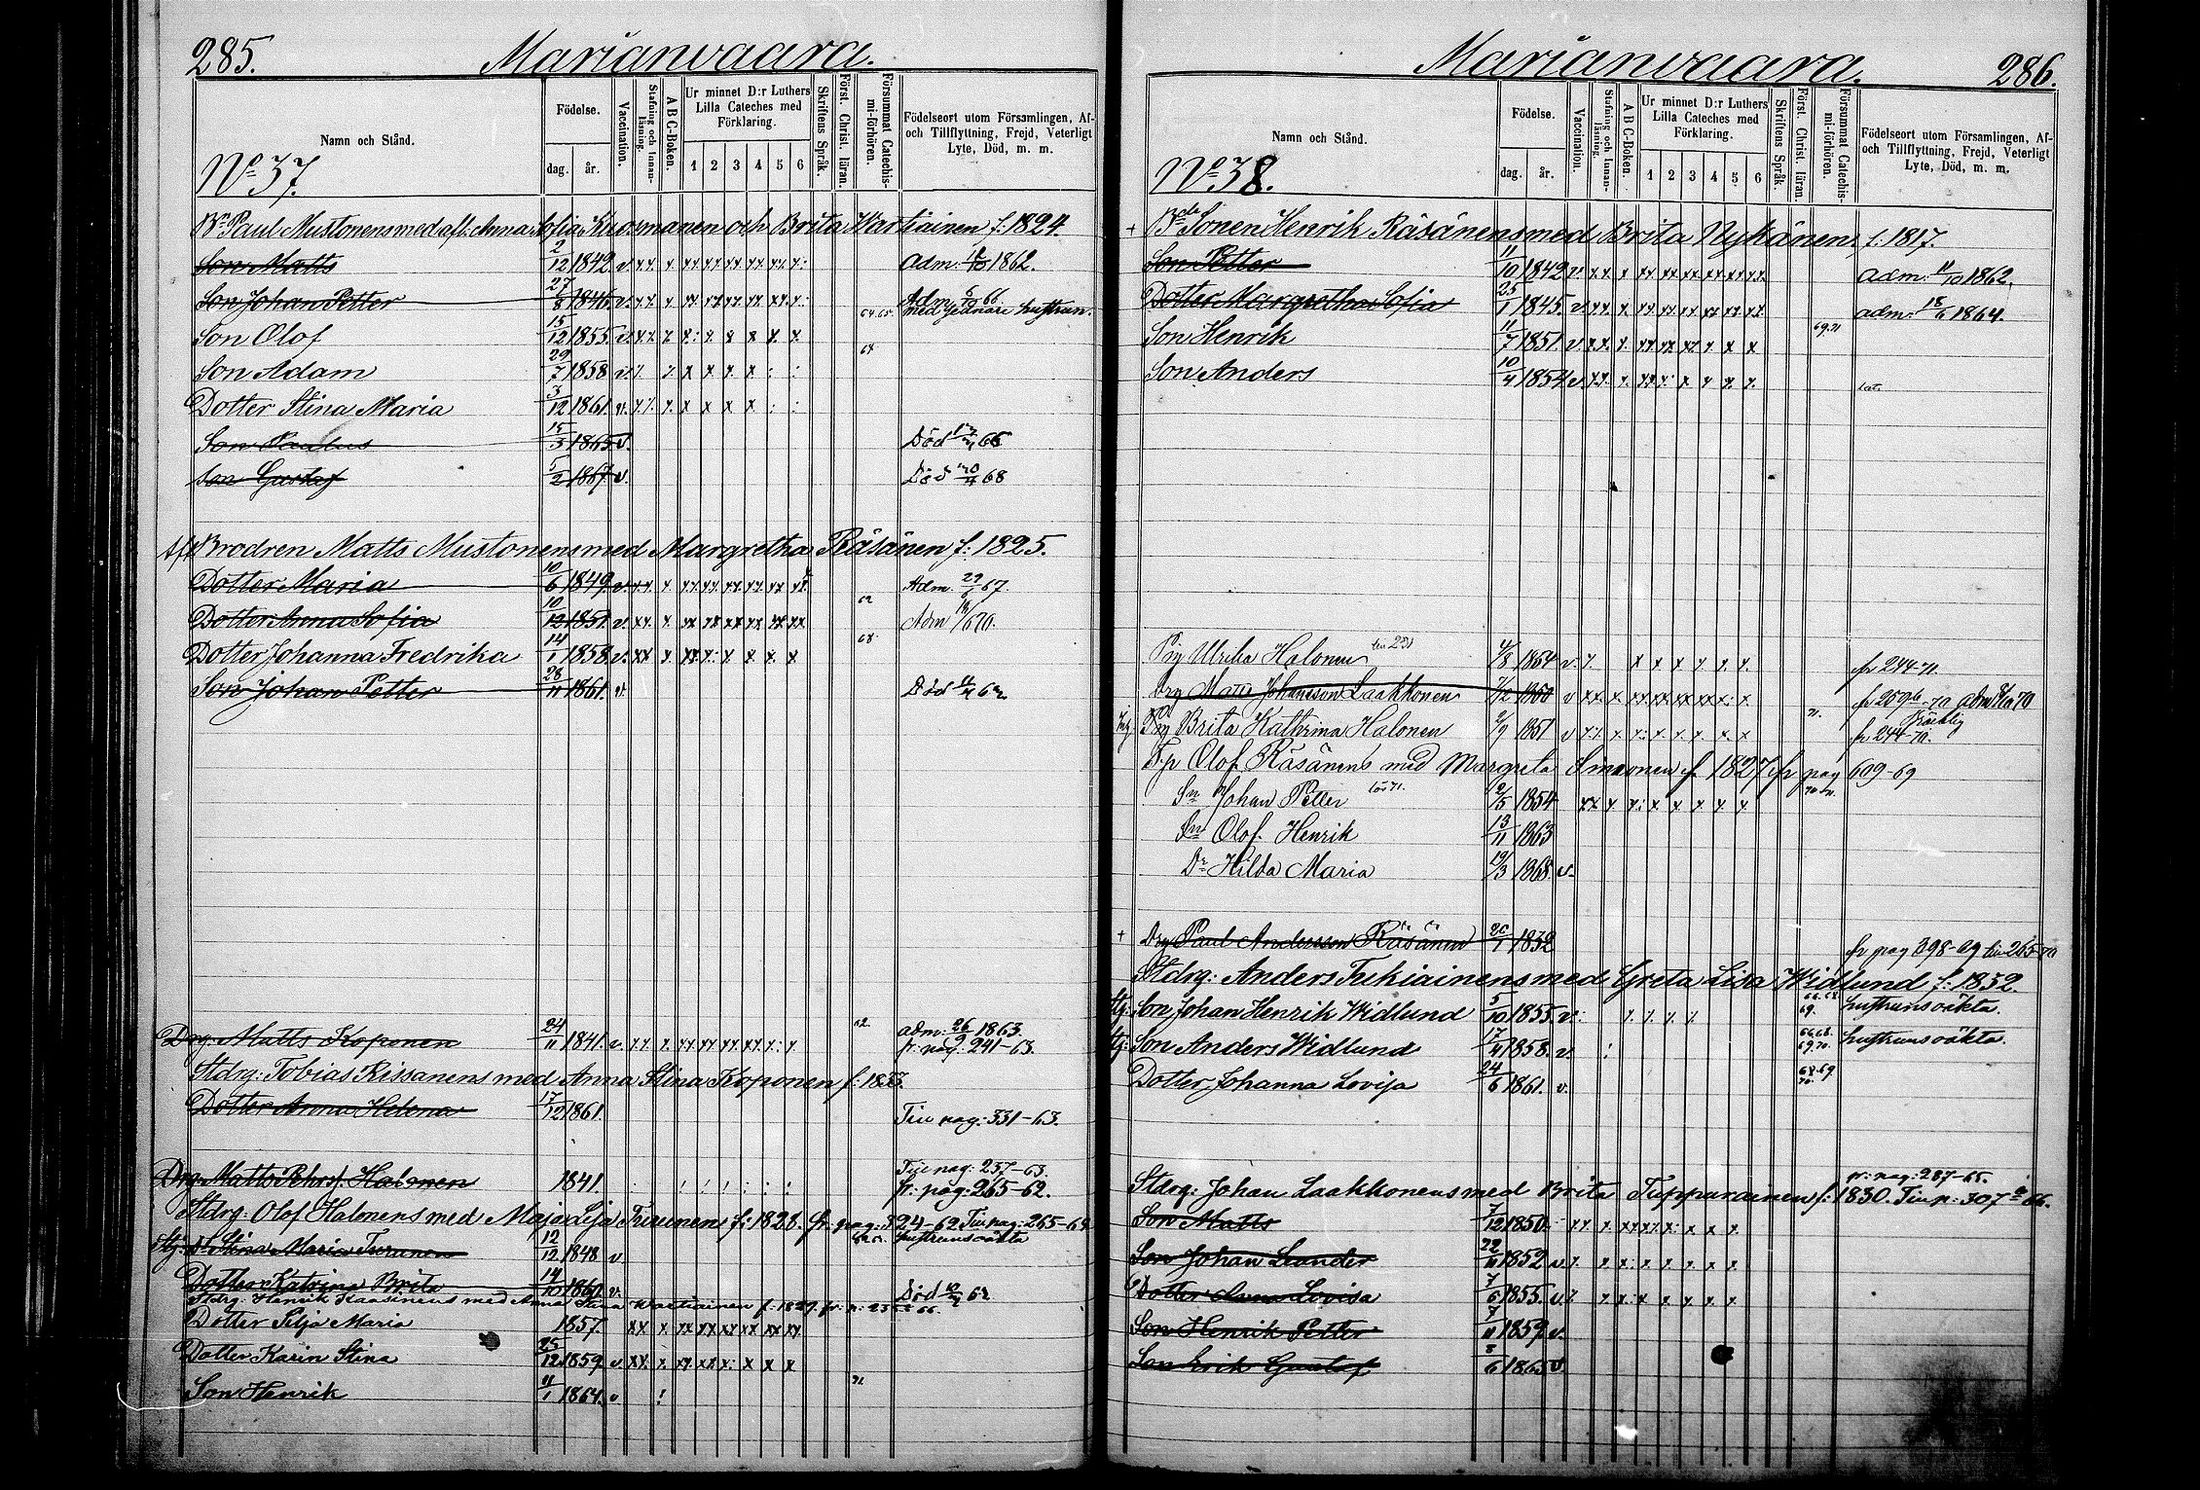 285. Marianvaara.
Namn och Stånd.
Födelse.
dag. år.
Vaccination.
Stafning och Innanläsning.
A B C-Boken.
Ur minnet D:r Luthers Lilla Cateches med Förklaring.
1 2 3 4 5 6
Skriftens Språk.
Först. Christ. läran.
Försummat Catechismi-förhören.
Födelseort utom Församlingen, Af- och Tillflyttning, Frejd, Veterligt Lyte, Död, m. m.
No 37.
Bn Paul Mustonens med afl. Anna Sofia och Brita Wartiainen f: 1824.
Son Matts 2/12 1842 v. adm: 1862.
Son Johan Petter 27/8 1846 v. 64.65. Adm 66 med hustrun.
Son Olof 15/12 1855 v. 64
Son Adam 29/7 1858 v.
Dotter Stina Maria 3/12 1861 v.
Son Paulus 15/3 1865 v. Död 66
Son Gustaf 5/2 1867 v. Död 68
Brodren Matts Mustonens med Margretha Räsänen f: 1825.
Dotter Maria 10/6 1849 v. Adm. 67.
Dotter Anna Sofia 10/12 1851 v. 62 Adm 70.
Dotter Johanna Fredrika 14/1 1858 v. 68.
Son Johan Petter 28/11 1861 v. Död 62
Drg: Matts Koponen 24/11 1841 v. 62. adm: 26/9 1863. fr. pag: 241-63.
Stdrg: Tobias Rissanens med Anna Stina Koponen f: 1833.
Dotter Anna Helena 17/12 1861. Till pag: 331-63.
Drg: Matts Pehrsf. Halonen 1841. Till pag: 237-63. fr: pag: 265-62.
Stdrg: Olof Halonens med Maja Lisa Turunens f: 1828. fr. pag: 324-62 Till pag: 265-64.
Dr Stina Maria Turunen 12/12 1848 v hustruns oäkta
Dotter Katrina Brita 14/10 1860 v. Död 62
Stdrg: Henrik Kaasinens med Anna Stina Wartiainen f: 1827. fr. p: 66.
Dotter Silja Maria 1857.
Dotter Karin Stina 25/12 1859 v
Son Henrik 11/1 1864. v 71.
Marianvaara. 286.
Namn och Stånd.
Födelse.
dag. år.
Vaccination.
Stafning och Innanläsning.
A B C-Boken.
Ur minnet D:r Luthers Lilla Cateches med Förklaring.
1 2 3 4 5 6
Skriftens Språk.
Först. Christ. läran.
Försummat Catechismi-förhören.
Födelseort utom Församlingen, Af- och Tillflyttning, Frejd, Veterligt Lyte, Död, m. m.
No 38.
+ Sonen Henrik Räsänens med Brita Nykänen f: 1817.
Son Petter 11/10 1842 v. adm: 11/10 1862.
Dotter Margretha Sofia 25/1 1845. v. adm: 18/6 1864.
Son Henrik 11/7 1851. v. 69.71
Son Anders 10/4 1854 v.
Pig Ulrika Halonen 4/8 1864 v. fr 244-71.
Drg Matts Johansson Laakkonen 7/12 1850 v fr 259b-70 adm 70
Pig Brita Kathrina Halonen 2/9 1851 v 71. fr 244-70.
Olof Räsänens med Margreta Simonen f 1827 fr pag 609-69
Sn Johan Petter 2/5 1854
Sn Olof Henrik 13/11 1863
Dr Hilda Maria 19/3 1868. v.
+ Drg Paul Andersson Räsänen 1832 fr pag 398-69 till 265-70
Stdrg: Anders Tukiainens med Greta Lisa Widlund f: 1832.
Son Johan Henrik Widlund 5/10 1855. v. 66.68. 69. hustruns oäkta.
Son Anders Widlund 17/4 1858. v. 66.68. 69.70. hustruns oäkta.
Dotter Johanna Lovisa 24/6 1861. v. 68.69 70.
fr: pag: 287-65.
Stdrg: Johan Laakkonens med Brita Tuppurainen f: 1830. Till p: 307-66.
Son Matts 7/12 1850.
Son Johan Leander 22/11 1852 v.
Dotter Anna Lovisa 7/6 1855. v.
Son Henrik Petter 7/11 1859 v.
Son Erik Gustaf 8/6 1865 v.